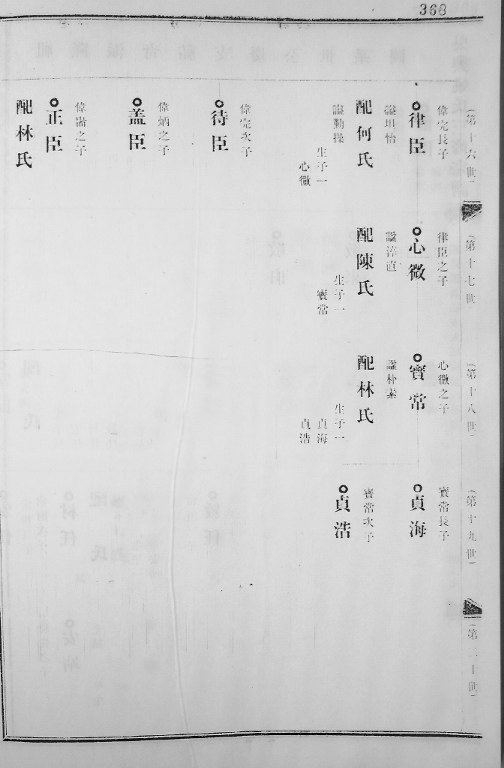 368
（第十六世）
偉定長子
律臣
諡坦怡
配何氏
諡勤操
生子一
心微
偉定次子
待臣
偉炳之子
盖臣
之子
正臣
配林氏
（第十七世
律臣之子
心微
諡淳直
配陳氏
生子一
寳常
（第十八世）
心微之子
寳常
諡朴素
配林氏
生子一
貞海
貞浩
（第十九世）
寳常長子
貞海
寳常次子
貞浩
（第二十世）